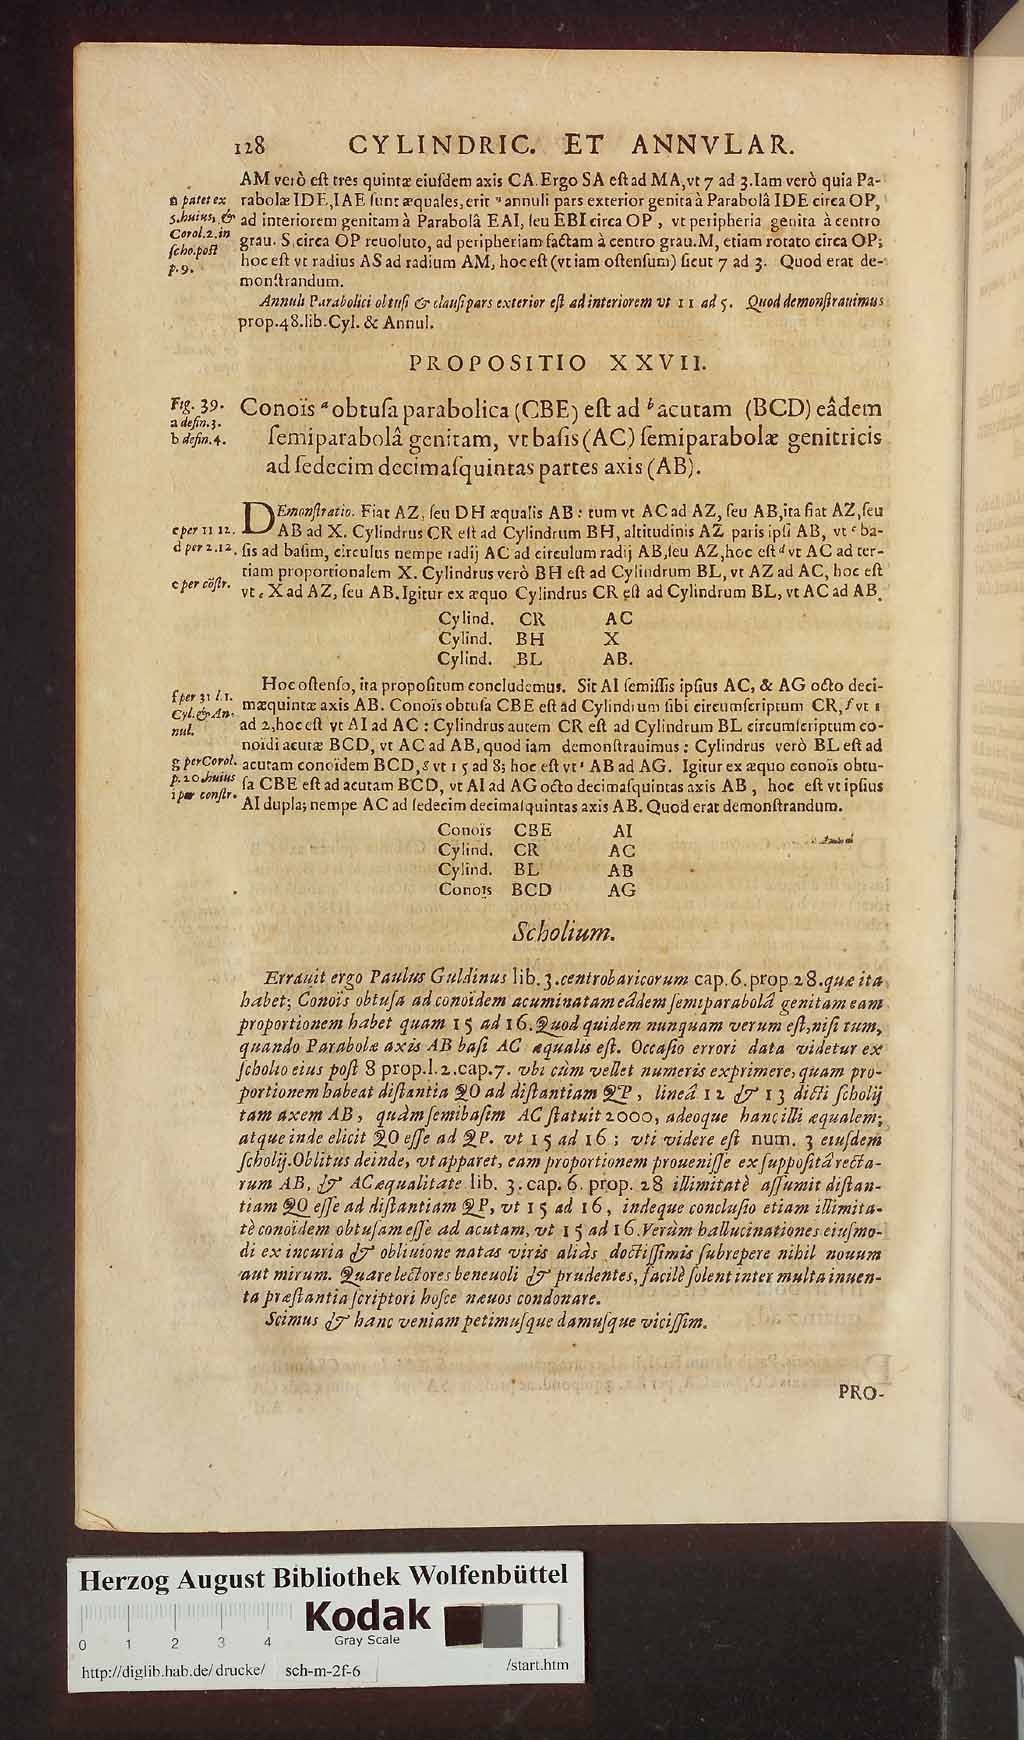 128 CYLINDRIC. ET ANNVLAR.
AM verò eſt tres quintæ eiuſdem axis CA. Ergo SA eſt ad MA, vt 7 ad 3. Iam verò quia Pa-
n patet ex
5. huius, &
Corol. 2. in
ſcho. poſt
p. 9.
rabolæ IDE, IAE ſunt æquales, erit n annuli pars exterior genita à Parabolâ IDE circa OP,
ad interiorem genitam à Parabolâ EAI, ſeu EBI circa OP , vt peripheria genita à centro
grau. S circa OP reuoluto, ad peripheriam factam à centro grau. M, etiam rotato circa OP;
hoc eſt vt radius AS ad radium AM, hoc eſt (vt iam oſtenſum) ſicut 7 ad 3. Quod erat de-
monſtrandum.
Annuli Parabolici obtuſi & clauſi pars exterior eſt ad interiorem vt 11 ad 5. Quod demonſtrauimus
prop. 48. lib. Cyl. & Annul.
PROPOSITIO XXVII.
Fig. 39.
a defin. 3.
b defin. 4.
Conoïs a obtuſa parabolica (CBE) eſt ad b acutam (BCD) eâdem
ſemiparabolâ genitam, vt baſis (AC) ſemiparabolæ genitricis
ad ſedecim decimaſquintas partes axis (AB).
DEmonſtratio. Fiat AZ, ſeu DH æqualis AB : tum vt AC ad AZ, ſeu AB, ita fiat AZ, ſeu
c per 11 12.
AB ad X. Cylindrus CR eſt ad Cylindrum BH, altitudinis AZ paris ipſi AB, vt c ba-
d per 2. 12.
ſis ad baſim, circulus nempe radij AC ad circulum radij AB, ſeu AZ, hoc eſt d vt AC ad ter-
tiam proportionalem X. Cylindrus verò BH eſt ad Cylindrum BL, vt AZ ad AC, hoc eſt
e per cōſtr.
vt e X ad AZ, ſeu AB. Igitur ex æquo Cylindrus CR eſt ad Cylindrum BL, vt AC ad AB.
Cylind. CR AC
Cylind. BH X
Cylind. BL AB.
Hoc oſtenſo, ita propoſitum concludemus. Sit AI ſemiſſis ipſius AC, & AG octo deci-
f per 31 l. 1.
Cyl. & An-
nul.
mæquintæ axis AB. Conoïs obtuſa CBE eſt ad Cylindrum ſibi circumſcriptum CR, f vt 1
ad 2, hoc eſt vt AI ad AC : Cylindrus autem CR eſt ad Cylindrum BL circumſcriptum co-
noïdi acutæ BCD, vt AC ad AB, quod iam demonſtrauimus : Cylindrus verò BL eſt ad
g per Corol.
p. 20. huius
i per conſtr.
acutam conoïdem BCD, g vt 15 ad 8; hoc eſt vt i AB ad AG. Igitur ex æquo conoïs obtu-
ſa CBE eſt ad acutam BCD, vt AI ad AG octo decimaſquintas axis AB , hoc eſt vt ipſius
AI dupla; nempe AC ad ſedecim decimaſquintas axis AB. Quod erat demonſtrandum.
Conoïs CBE AI
Cylind. CR AC
Cylind. BL AB
Conoïs BCD AG
Scholium.
Errauit ergo Paulus Guldinus lib. 3. centrobaricorum cap. 6. prop 28. quæ ita
habet; Conoïs obtuſa ad conoïdem acuminatam eâdem ſemiparabolâ genitam eam
proportionem habet quam 15 ad 16. Quod quidem nunquam verum eſt, niſi tum,
quando Parabolæ axis AB baſi AC æqualis eſt. Occaſio errori data videtur ex
ſcholio eius poſt 8 prop. l. 2. cap. 7. vbi cùm vellet numeris exprimere, quam pro-
portionem habeat diſtantia QO ad diſtantiam QP , lineâ 12 & 13 dicti ſcholij
tam axem AB , quàm ſemibaſim AC ſtatuit 2000, adeoque hanc illi æqualem;
atque inde elicit QO eſſe ad QP. vt 15 ad 16 ; vti videre eſt num. 3 eiuſdem
ſcholij. Oblitus deinde, vt apparet, eam proportionem proueniſſe ex ſuppoſitâ recta-
rum AB, & AC æqualitate lib. 3. cap. 6. prop. 28 illimitatè aſſumit diſtan-
tiam QO eſſe ad diſtantiam QP, vt 15 ad 16, indeque concluſio etiam illimita-
tè conoïdem obtuſam eſſe ad acutam, vt 15 ad 16. Verùm hallucinationes eiuſmo-
di ex incuria & obliuione natas viris aliàs doctiſſimis ſubrepere nihil nouum
aut mirum. Quare lectores beneuoli & prudentes, facilè ſolent inter multa inuen-
ta præſtantia ſcriptori hoſce næuos condonare.
Scimus & hanc veniam petimuſque damuſque viciſſim.
PRO-
Herzog August Bibliothek Wolfenbüttel
Kodak
Gray Scale
0 1 2 3 4
http://diglib.hab.de/drucke/ sch-m-2f-6 /start.htm